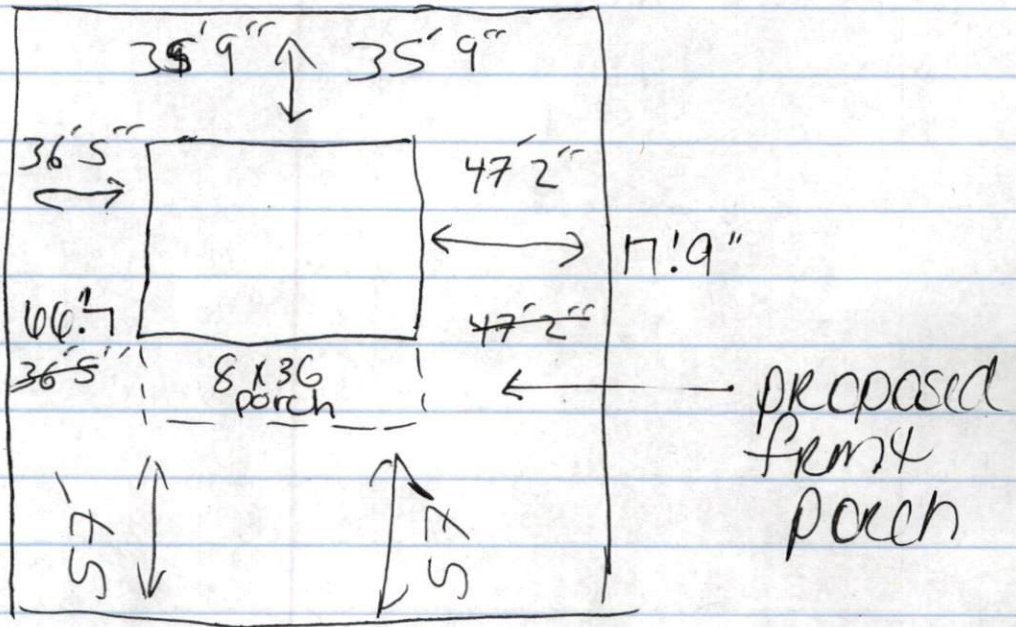 35'9" 35'9"
36'5"
47'2"
17'.9"
66.'7
47'2"
36'5"
8 x 36
porch
proposed
front
porch
57'
57